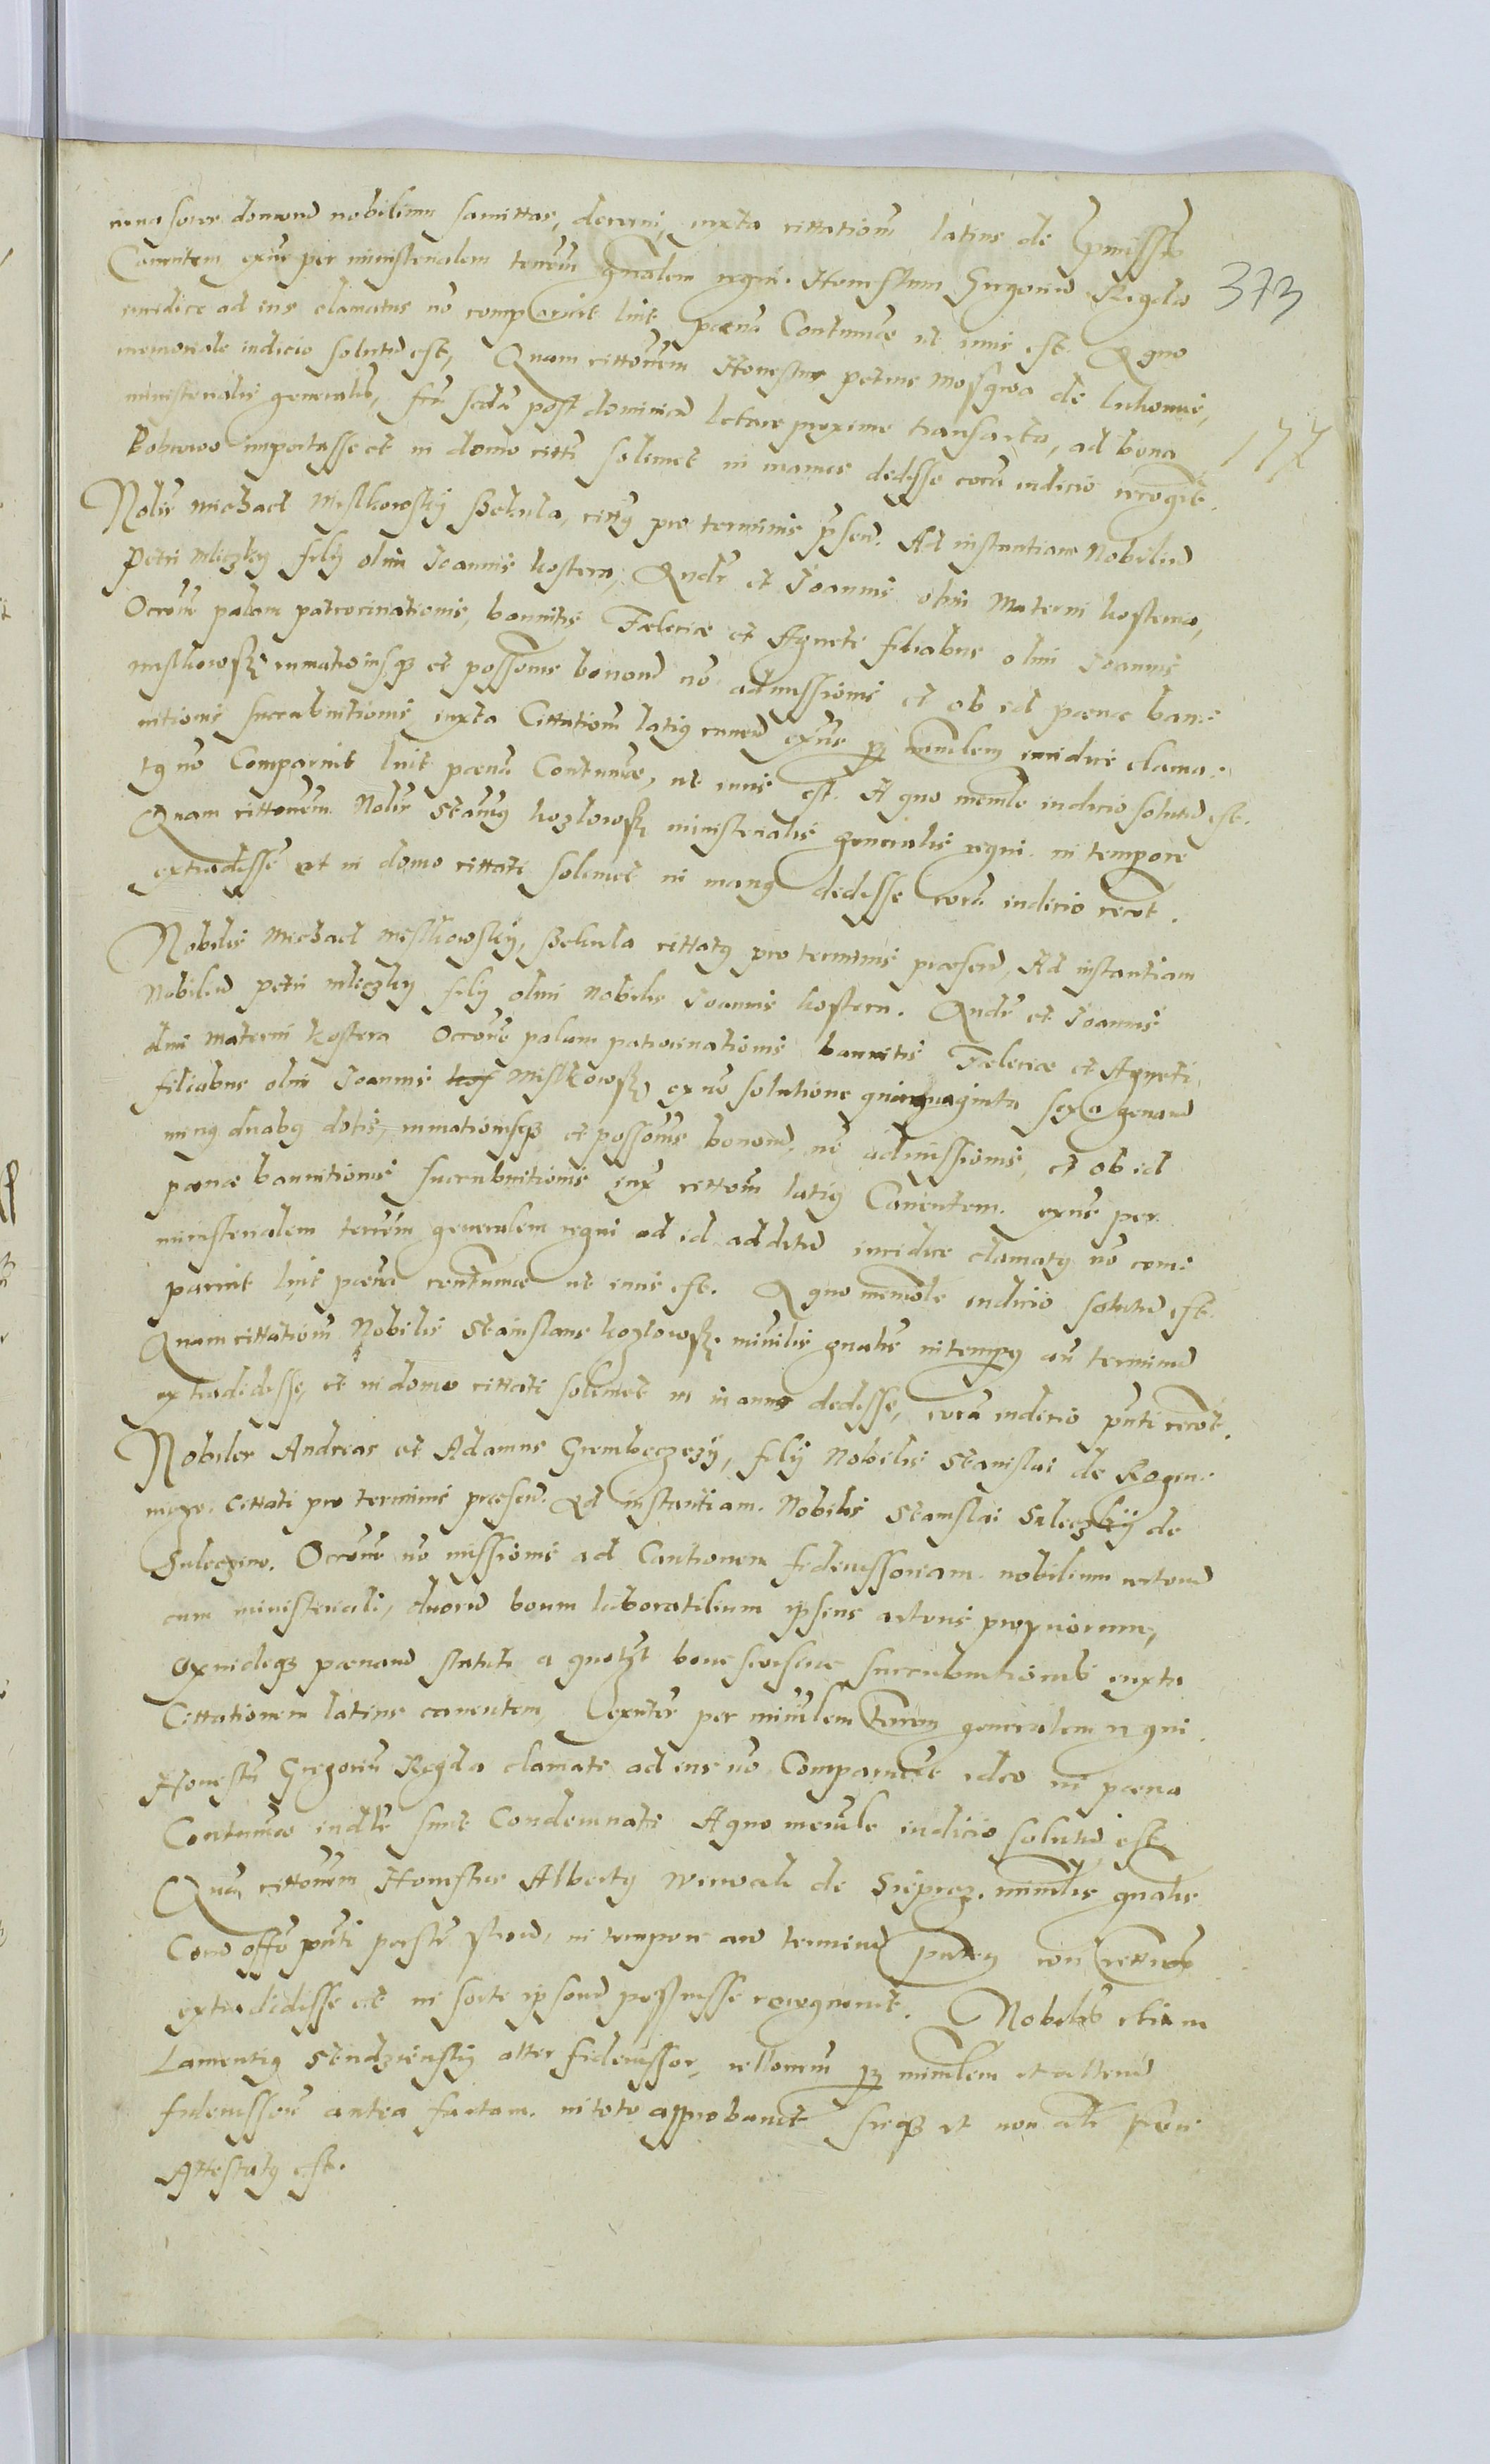 domorum nobilium sanittas, decerni, iuxta cittationem latius de praemissis
Canentem, exurr per ministerialem terrem gnalem regni. Honestum Gregorium Regda 373
iuridice ad ius clamatus non comparuit luit poena Contumae ut iuris est. A quo
memoriale iudicio solutu est, Quam cittonem Honestus petrus mosqwa de
ministerialis generalis, fria scda post dominica letare proxime transacta, ad bona 177
importasse et in domo citti solemet in manus dedisse cora iudicio recogt.
Nobilis Michael Mislkowskij Bekula, cittus pro terminis psen. Ad instantiam Nobiliu
Petri Mleczky filij olim Joannis kostera, Andr et Joannis olim Materni kostera,
Occone palam patrocinationis, bannitis, Fœlicie et Agneti filiabus olim Joannis
mislkowsky inmationisque et possonis bonoru no admissionis et ob id poenae ban:
nitionis succubitionis iuxta Cittationem latius exurr per minlem iuridice clama:
tus no Comparuit luit poena Contumae, ut iuris est. A quo memle iudicio solutu est.
Quam cittonem Nobilis Stanus kozlowsky ministerialis generalis regni in tempore
extradisse et in domo cittati solemet in manus dedisse cora iudicio recot.
Nobilis Michael Mislkowskij, Bekula cittatus pro terminis praesen, Ad instantiam
Nobiliu petri mleczky filij olim nobilis Joannis kostera. Andr et Joannis
olim Materni kostera Occone palam patrocinationis bannitis Fœlicie et Agneti,
filiabus olim Joannis Mislkowsky ex no solutione quinquaginta sexagenaru
duabus dotis, inmationisque et possonis bonoru, no admissionis, et ob id
poenae bannitionis succubitionis iux cittonem latius Canentem. exurr per
ministerialem terrem generalem regni ad id additu iuridice clamatus no com:
paruit luit poena contumae ut iuris est. A quo memole iudicio solutu est.
Quam cittationem Nobilis Stanislaus kozlowsky minlis gnalis in tempus an terminu
extradidisse, et in domo cittati solemet in manus dedisse, cora iudicio pnti recot.
Nobiles Andreas et Adamus Grembeczsij, filij Nobilis Stanislai de Rogen:
Cittati pro terminis praesen. Ad instantiam. Nobilis Stanislai Suleczkij de
Suleczino. Occone no missionis ad Cautionem fideiussoriam. nobilium
cum ministeriali, duoru boum laboratilium ipsius actoris propriorum,
exindeque poenaru statuti a quolzt boue seorsiue succubitionis iuxta
Cittationem latius canentem, exurr per minlem terrem generalem regni
Honestu Gregoriu Regda clamati ad ius no Comparuerut ideo in poena
Contumae indlr sunt Condemnati A quo memle iudicio solutu est
Quam cittonem Honestus Albertus de minlis gnalis
Coru offo pnti in tempore an terminu
extradidisse et in sorte ipsoru possuisse recognouit. Nobilis etiam
Laurentius Stendzienskij alter fideiussor, rellonem per minlem et alteru
fideiussore antea factam. in toto approbauit sicque et non
Attestatus est.